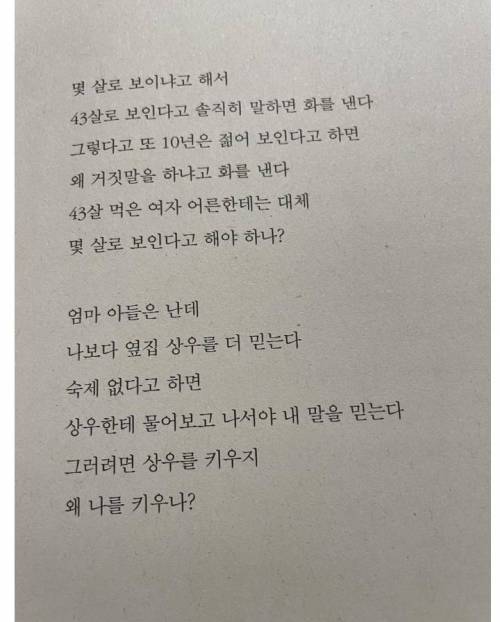 몇 살로 보이냐고 해서
43살로 보인다고 솔직히 말하면 화를 낸다
그렇다고 또 10년은 젊어 보인다고 하면
왜 거짓말을 하냐고 화를 낸다
43살 먹은 여자 어른한테는 대체
몇 살로 보인다고 해야 하나?
엄마 아들은 난데
나보다 옆집 상우를 더 믿는다
숙제 없다고 하면
상우한테 물어보고 나서야 내 말을 믿는다
그러려면 상우를 키우지
왜 나를 키우나?